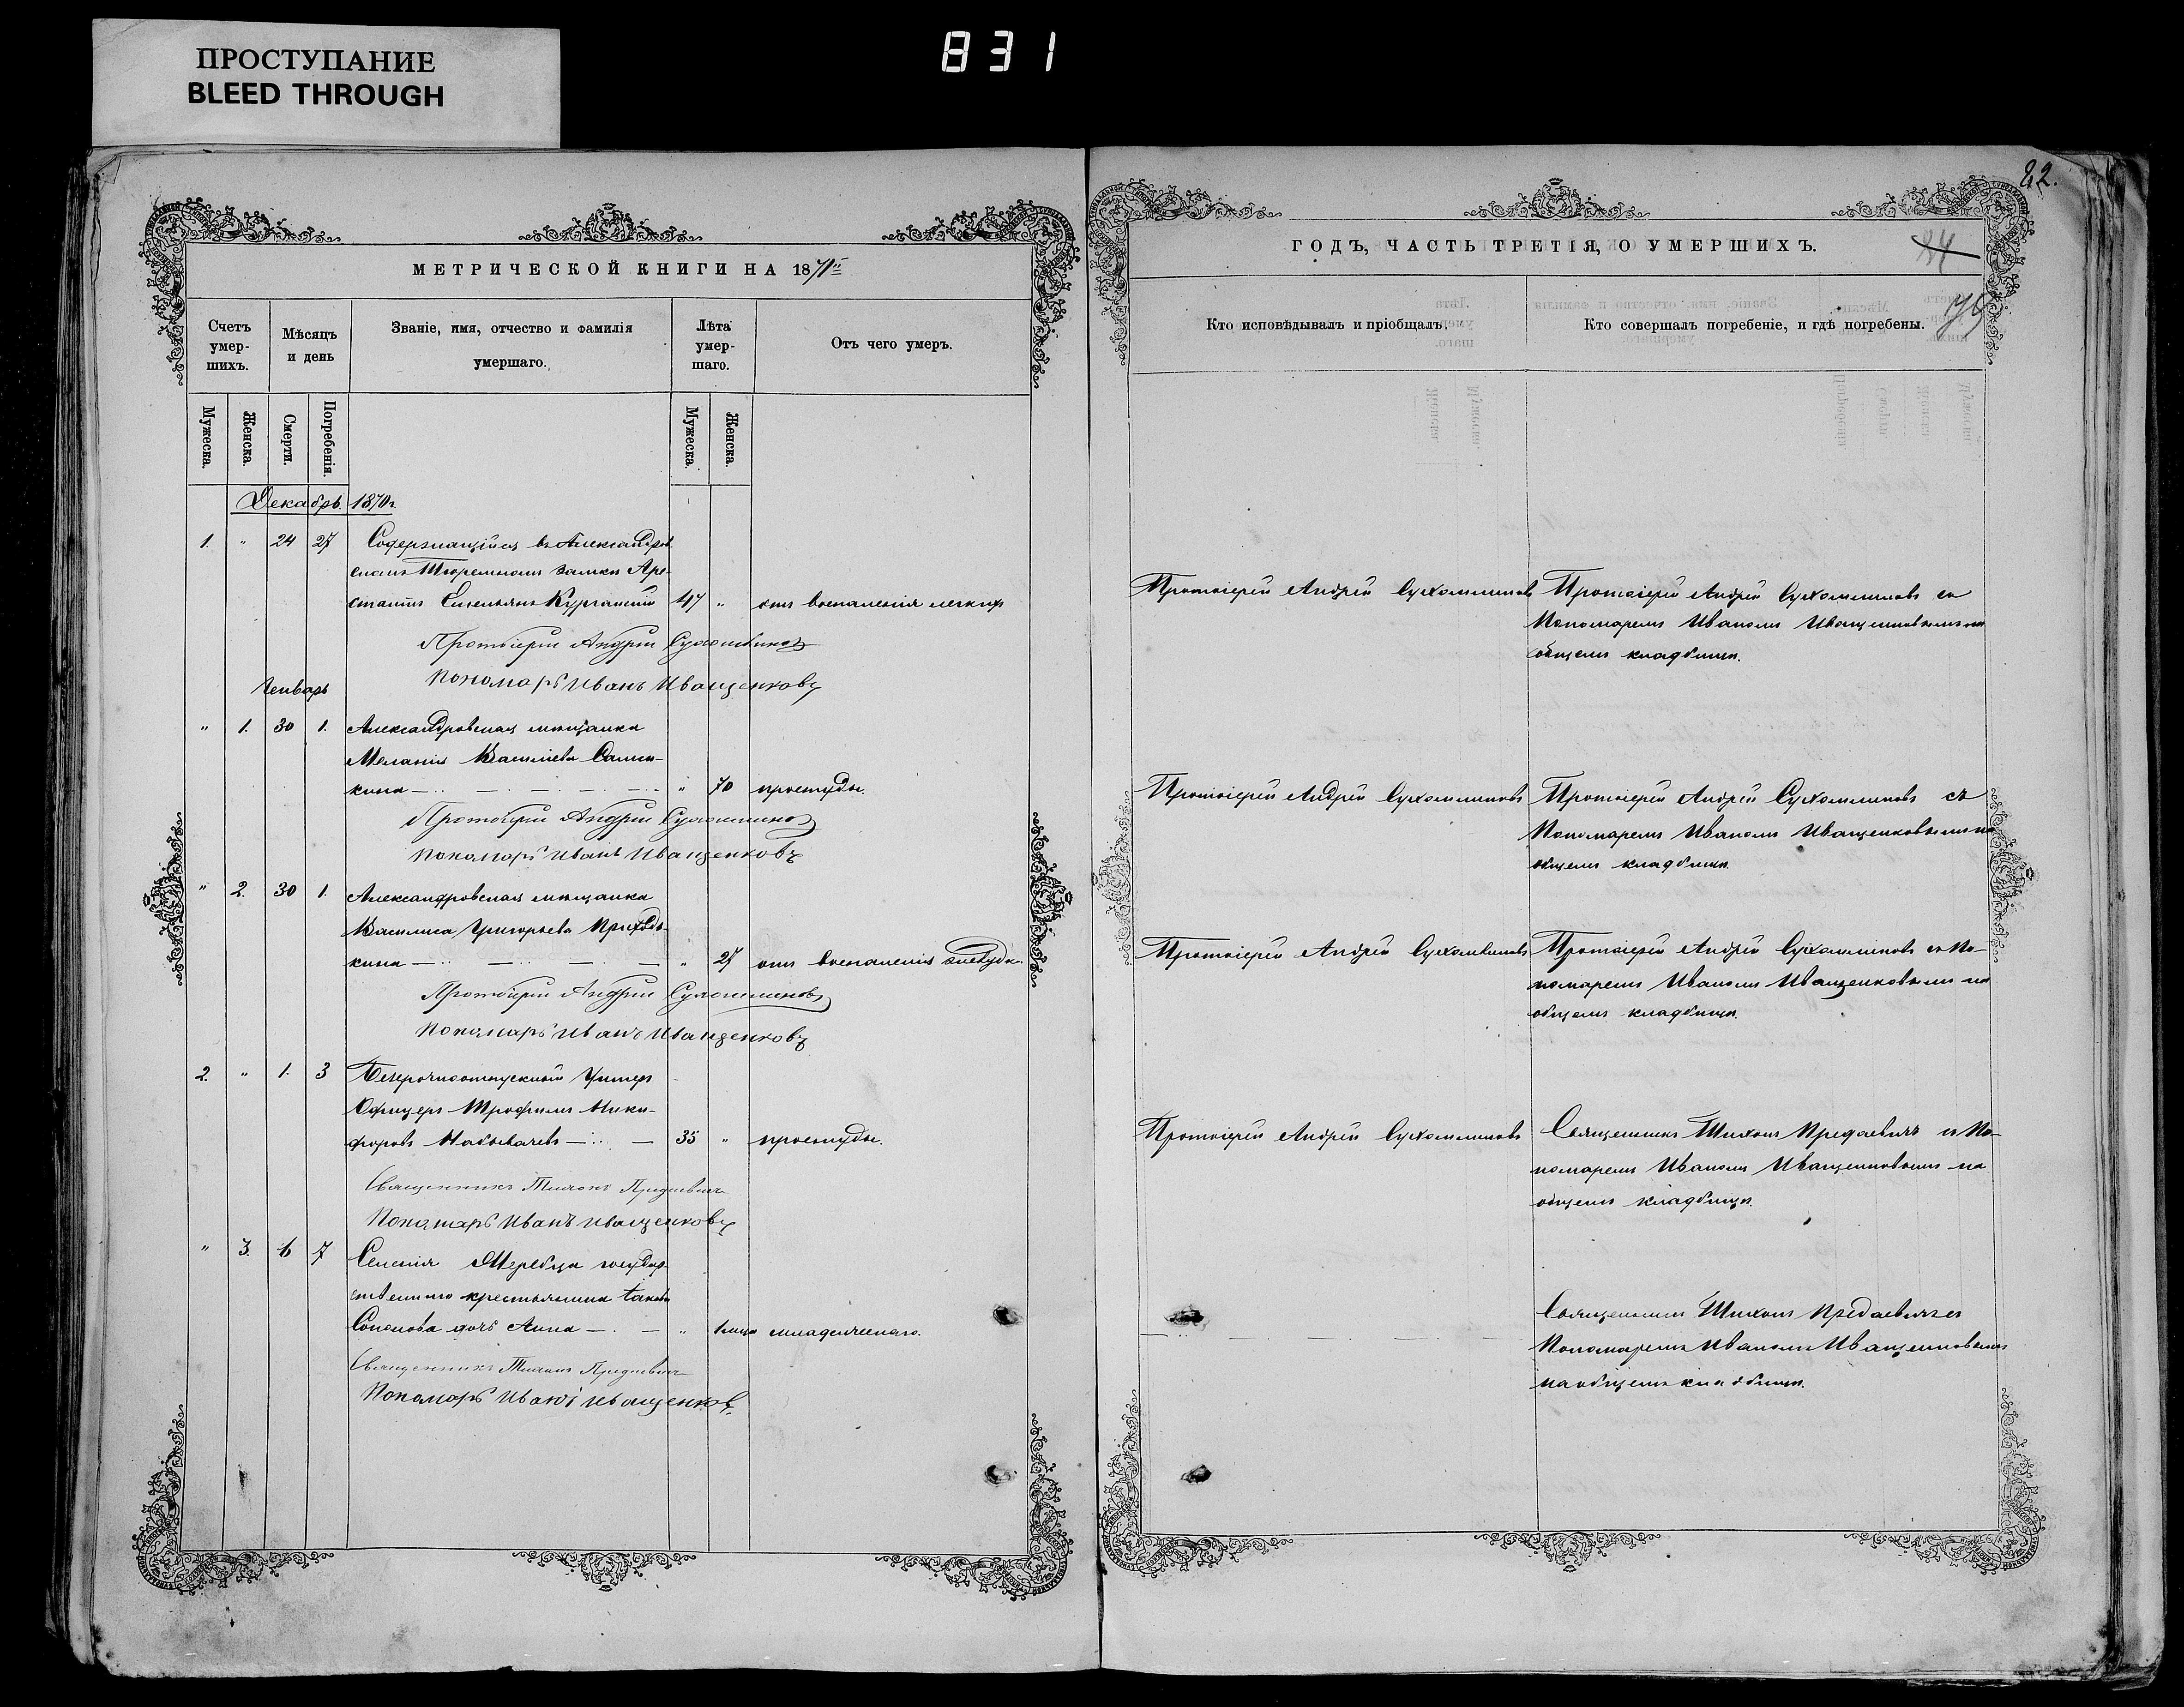 ПРОСТУПАНИЕ
BLEED THROUGH
831
82.
МЕТРИЧЕСКОЙ КНИГИ НА 1871
Счетъ умер-шихъ.
Мѣсяцъ и день
Званіе, имя, отчество и фамилія умершаго.
Лѣта умер-шаго.
Отъ чего умеръ.
Мужеска.
Женска.
Смерти.
Погребенія.
Мужеска.
Женска.
Декабрь 1870 г.
1. " 24 27 Содержащійся въ Александров
скомъ Тюремномъ замкѣ Аре-
стантъ Емельянъ 47 " отъ воспаленія легкихъ
Протоіерей Андрей Сухомлиновъ
Пономарь Иванъ Иващенковъ
Генварь
" 1. 30 1. Александровская мѣщанка
Меланія Василіева
кина " 70 простуды.
Протоіерей Андрей Сухомлиновъ
Пономарь Иванъ Иващенковъ
" 2. 30 1. Александровская мѣщанка
Василиса Григорьева Приходь-
кина " 27 отъ воспаленія желудка
Протоіерей Андрей Сухомлиновъ
Пономарь Иванъ Иващенковъ
2. " 1. 3 Безсрочноотпускной Унтеръ
Офицеръ Трофимъ Ники-
форовъ 35 " простуды.
Священникъ Тихонъ
Пономарь Иванъ Иващенковъ
" 3. 6 7 Селенія Жеребца государ-
ственнаго крестьянина
дочь Анна " младенческаго.
Священникъ Тихонъ
Пономарь Иванъ Иващенковъ
ГОДЪ, ЧАСТЬ ТРЕТІЯ, О УМЕРШИХЪ.
Кто исповѣдывалъ и пріобщалъ.
Кто совершалъ погребеніе, и гдѣ погребены.
Протоіерей Андрей Сухомлиновъ
Протоіерей Андрей Сухомлиновъ съ
Пономаремъ Иваномъ Иващенковымъ на
общемъ кладбищѣ.
Протоіерей Андрей Сухомлиновъ
Протоіерей Андрей Сухомлиновъ съ
Пономаремъ Иваномъ Иващенковымъ на
общемъ кладбищѣ.
Протоіерей Андрей Сухомлиновъ
Протоіерей Андрей Сухомлиновъ съ По-
номаремъ Иваномъ Иващенковымъ на
общемъ кладбищѣ.
Протоіерей Андрей Сухомлиновъ
Священникъ Тихонъ съ По-
номаремъ Иваномъ Иващенковымъ на
общемъ кладбищѣ.
Священникъ Тихонъ съ
Пономаремъ Иваномъ Иващенковымъ
на общемъ кладбищѣ.